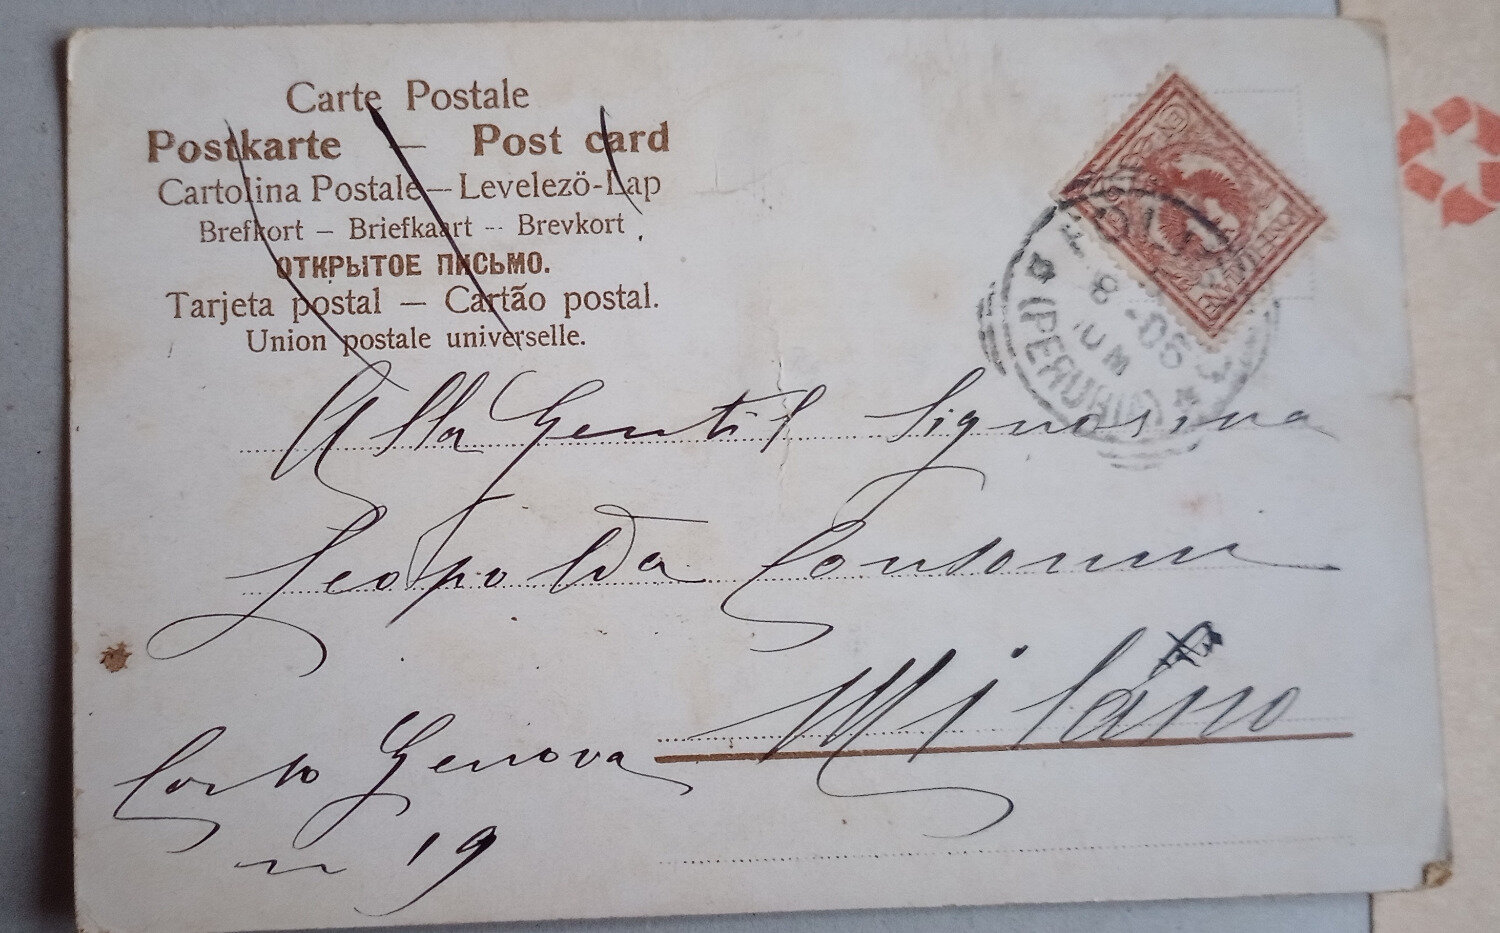 Carte Postale
Postkarte — Post card
Cartolina Postale — Levelezö-Lap
Brefkort — Briefkaart -- Brevkort
ОТКРЫТОЕ ПИСЬМО.
Tarjeta postal — Cartão postal.
Union postale universelle.
8 - 06
10 M
(PERUGIA)
Alla Gentil Signorina
Leopolda Consonni
Milano
Corso Genova
n 19